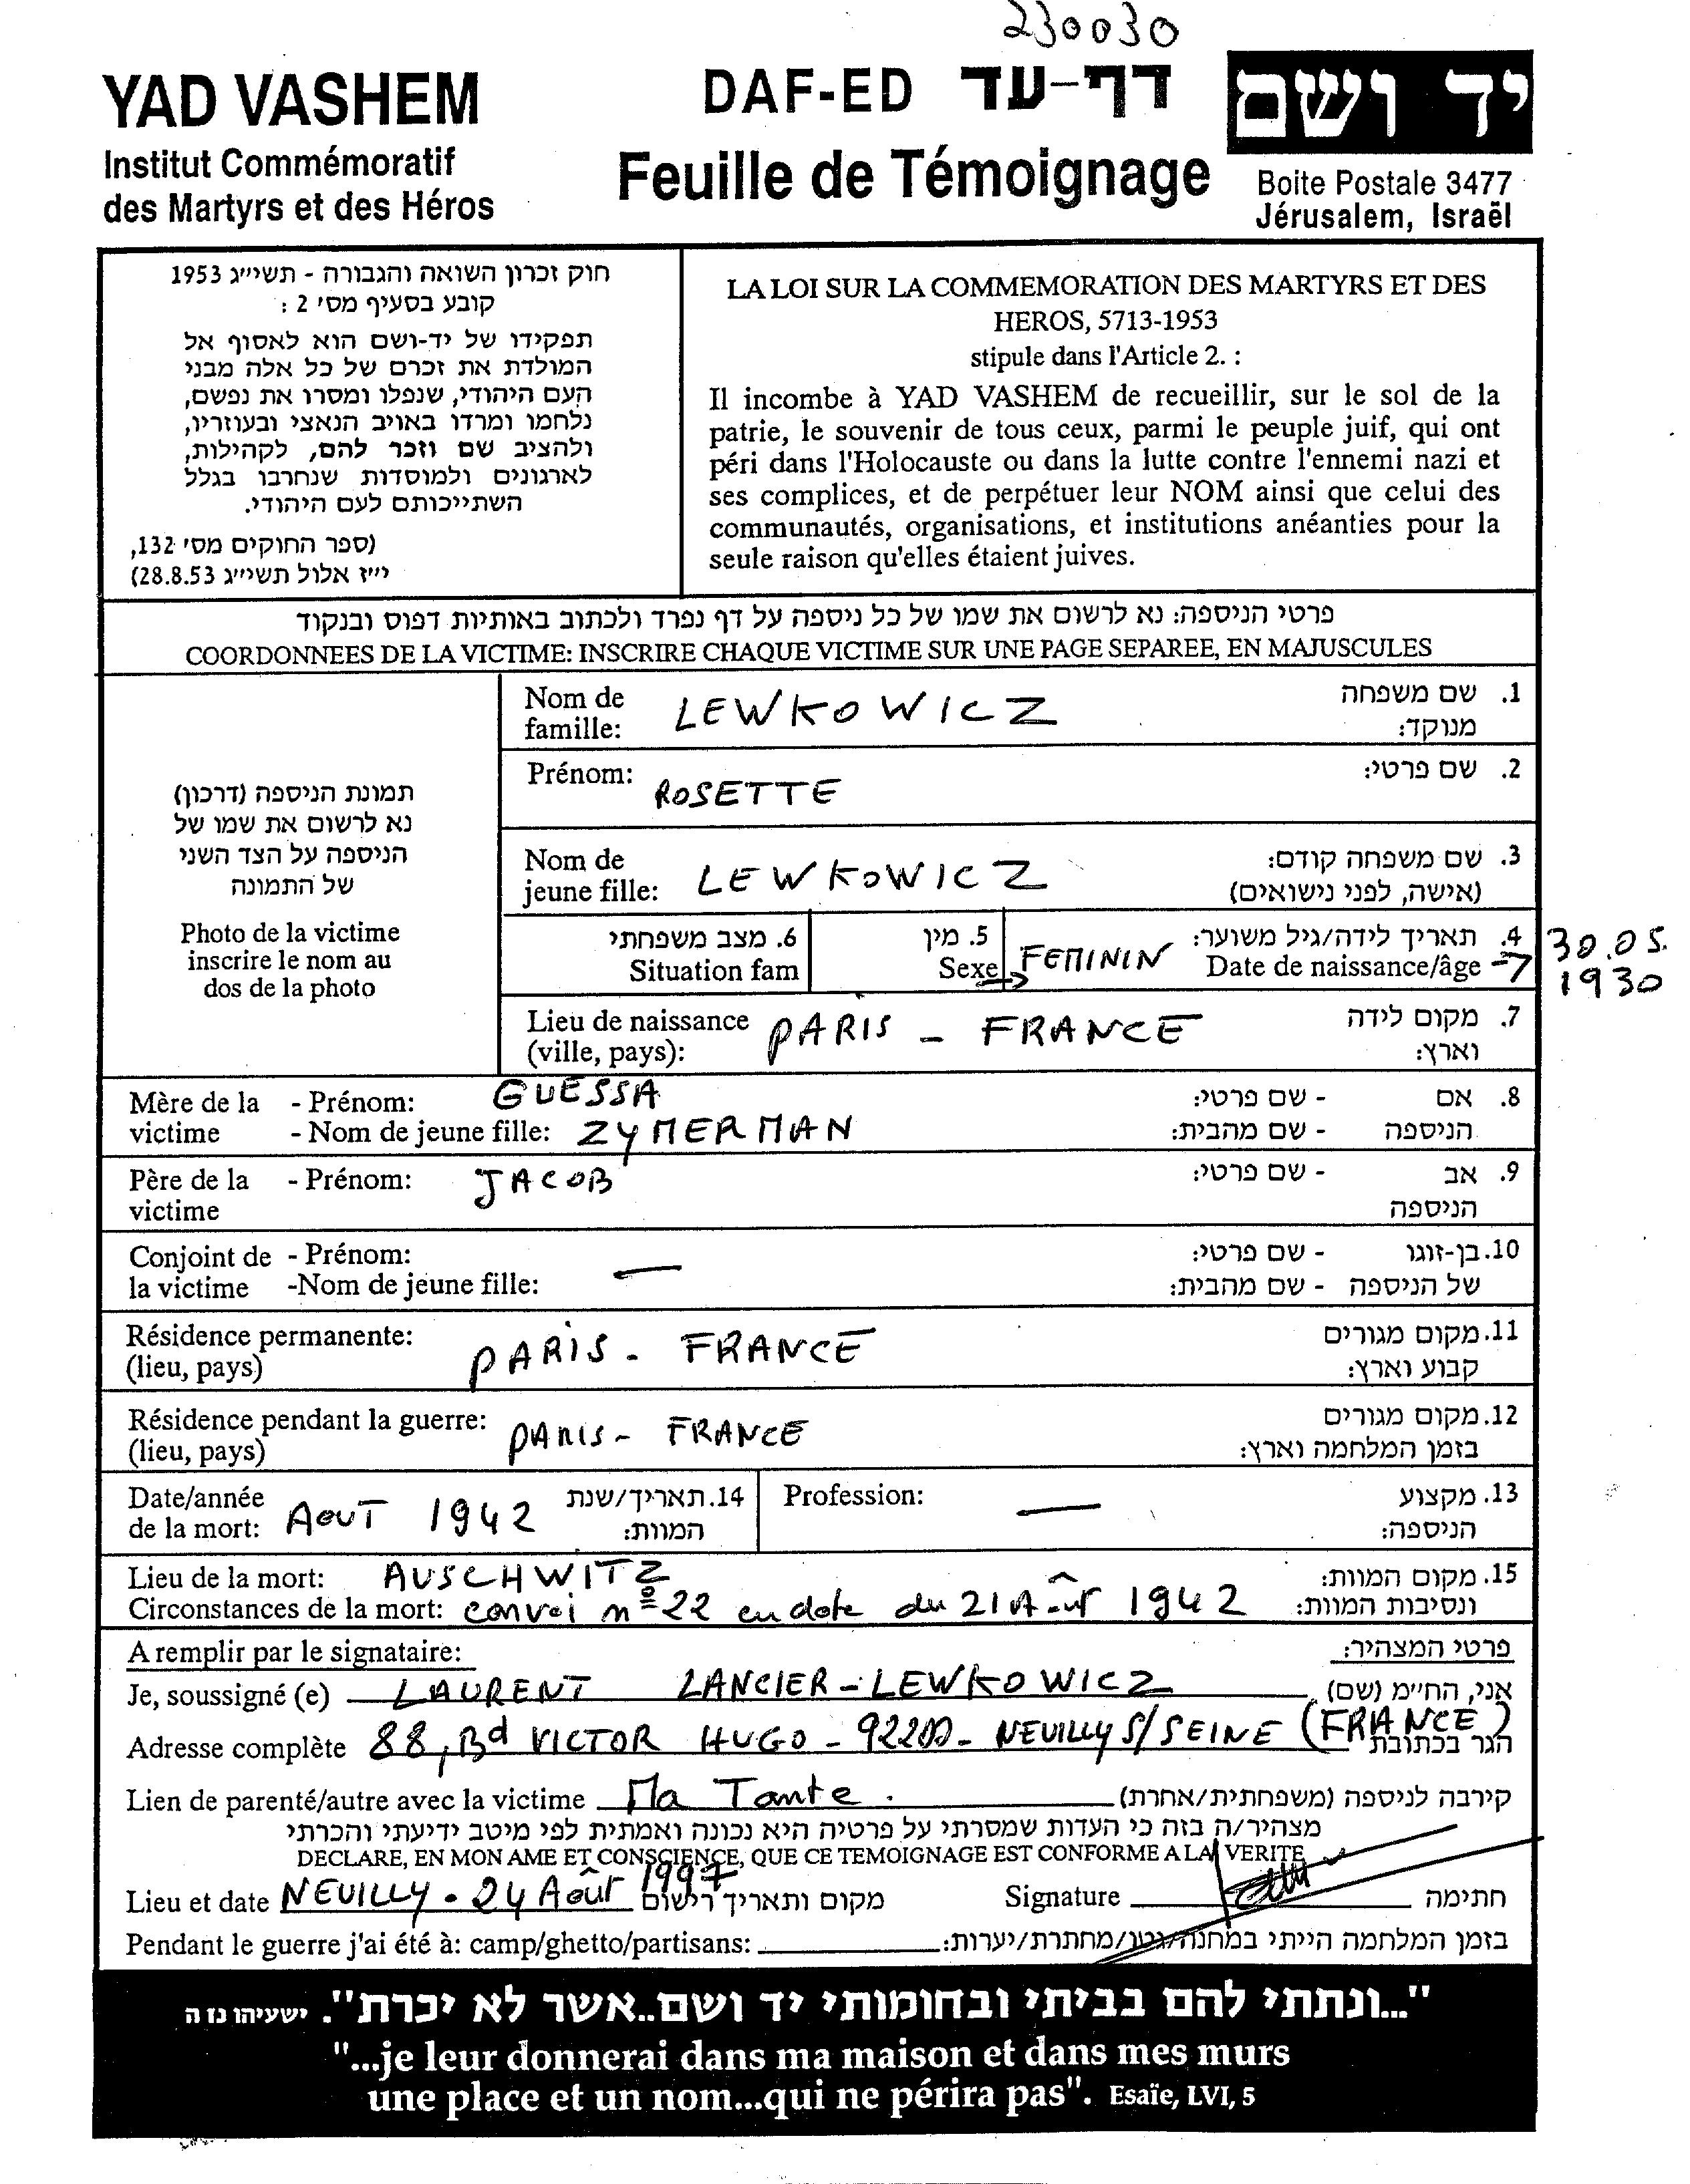 230030
YAD VASHEM
Institut Commémoratif
des Martyrs et des Héros
DAF-ED דף-עד
Feuille de Témoignage
יד ושם
Boite Postale 3477
Jérusalem, Israël
חוק זכרון השואה והגבורה - תשי״ג 1953
קובע בסעיף מס׳ 2 :
תפקידו של יד-ושם הוא לאסוף אל
המולדת את זכרם של כל אלה מבני
העם היהודי, שנפלו ומסרו את נפשם,
נלחמו ומרדו באויב הנאצי ובעוזריו,
ולהציב שם וזכר להם, לקהילות,
לארגונים ולמוסדות שנחרבו בגלל
השתייכותם לעם היהודי.
(ספר החוקים מס׳ 132,
י״ז אלול תשי״ג 28.8.53)
LA LOI SUR LA COMMEMORATION DES MARTYRS ET DES
HEROS, 5713-1953
stipule dans l'Article 2. :
Il incombe à YAD VASHEM de recueillir, sur le sol de la
patrie, le souvenir de tous ceux, parmi le peuple juif, qui ont
péri dans l'Holocauste ou dans la lutte contre l'ennemi nazi et
ses complices, et de perpétuer leur NOM ainsi que celui des
communautés, organisations, et institutions anéanties pour la
seule raison qu'elles étaient juives.
פרטי הניספה: נא לרשום את שמו של כל ניספה על דף נפרד ולכתוב באותיות דפוס ובנקוד
COORDONNEES DE LA VICTIME: INSCRIRE CHAQUE VICTIME SUR UNE PAGE SEPAREE, EN MAJUSCULES
תמונת הניספה (דרכון)
נא לרשום את שמו של
הניספה על הצד השני
של התמונה
Photo de la victime
inscrire le nom au
dos de la photo
Nom de LEWKOWICZ 1. שם משפחה
famille: מנוקד:
Prénom: ROSETTE 2. שם פרטי:
Nom de LEWKOWICZ 3. שם משפחה קודם:
jeune fille: (אישה, לפני נישואים)
6. מצב משפחתי 5. מין FEMININ 4. תאריך לידה/גיל משוער: 30.05.
Situation fam Sexe Date de naissance/âge 1930
Lieu de naissance PARIS - FRANCE 7. מקום לידה
(ville, pays): וארץ:
Mère de la - Prénom: GUESSA - שם פרטי: 8. אם
victime - Nom de jeune fille: ZYMERMAN - שם מהבית: הניספה
Père de la - Prénom: JACOB - שם פרטי: 9. אב
victime הניספה
Conjoint de - Prénom: — - שם פרטי: 10. בן-זוגו
la victime -Nom de jeune fille: - שם מהבית: של הניספה
Résidence permanente: PARIS - FRANCE 11. מקום מגורים
(lieu, pays) קבוע וארץ:
Résidence pendant la guerre: PARIS - FRANCE 12. מקום מגורים
(lieu, pays) בזמן המלחמה וארץ:
Date/année AOUT 1942 14. תאריך/שנת Profession: — 13. מקצוע
de la mort: המוות: הניספה:
Lieu de la mort: AUSCHWITZ 15. מקום המוות:
Circonstances de la mort: convoi nº 22 en date du 21 Août 1942 ונסיבות המוות:
A remplir par le signataire: פרטי המצהיר:
Je, soussigné (e) LAURENT LANCIER-LEWKOWICZ אני, החי״מ (שם)
Adresse complète 88, Bd VICTOR HUGO - 92200 - NEUILLY S/SEINE (FRANCE) הגר בכתובת
Lien de parenté/autre avec la victime Ma Tante. קירבה לניספה (משפחתית/אחרת)
מצהיר/ה בזה כי העדות שמסרתי על פרטיה היא נכונה ואמתית לפי מיטב ידיעתי והכרתי
DECLARE, EN MON AME ET CONSCIENCE, QUE CE TEMOIGNAGE EST CONFORME A LA VERITE
Lieu et date NEUILLY. 24 Août 1997 מקום ותאריך רישום Signature חתימה
Pendant le guerre j'ai été à: camp/ghetto/partisans: בזמן המלחמה הייתי במחנה/גטו/מחתרת/יערות:
"...ונתתי להם בביתי ובחומותי יד ושם..אשר לא יכרת". ישעיהו נז ה
"...je leur donnerai dans ma maison et dans mes murs
une place et un nom...qui ne périra pas". Esaïe, LVI, 5